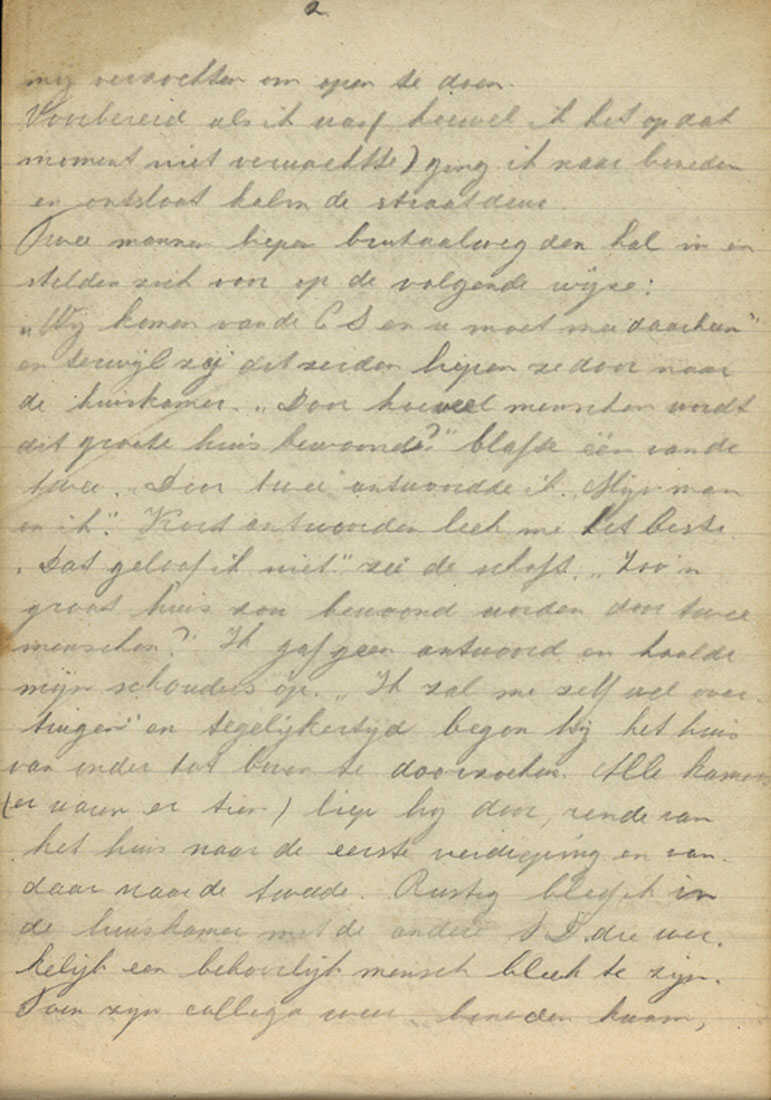 2
mij verzochten om open te doen.
Voorbereid als ik was (hoewel ik het op dat
moment niet verwachtte) ging ik naar beneden
en ontsloot kalm de straatdeur.
Twee mannen liepen brutaalweg den hal in en
stelden zich voor op de volgende wijze:
„Wij komen van de S en u moet mee daarheen"
en terwijl zij dit zeiden liepen ze door naar
de huiskamer. „Door hoeveel menschen wordt
dit groote huis bewoond?" blafte één van de
twee. „Door twee" antwoordde ik. „Mijn man
en ik". Kort antwoorden leek me het beste.
„Dat geloof ik niet" zei de schoft. „Zoo'n
groot huis zou bewoond worden door twee
menschen?" Ik gaf geen antwoord en haalde
mijn schouders op. „Ik zal me zelf wel over-
tuigen" en tegelijkertijd begon hij het huis
van onder tot boven te doorzoeken. Alle kamers
(er waren er tien) liep hij door, rende van
het huis naar de eerste verdieping en van
daar naar de tweede. Rustig bleef ik in
de huiskamer met de andere S.D. die wer-
kelijk een behoorlijk mensch bleek te zijn.
Toen zijn collega weer beneden kwam,